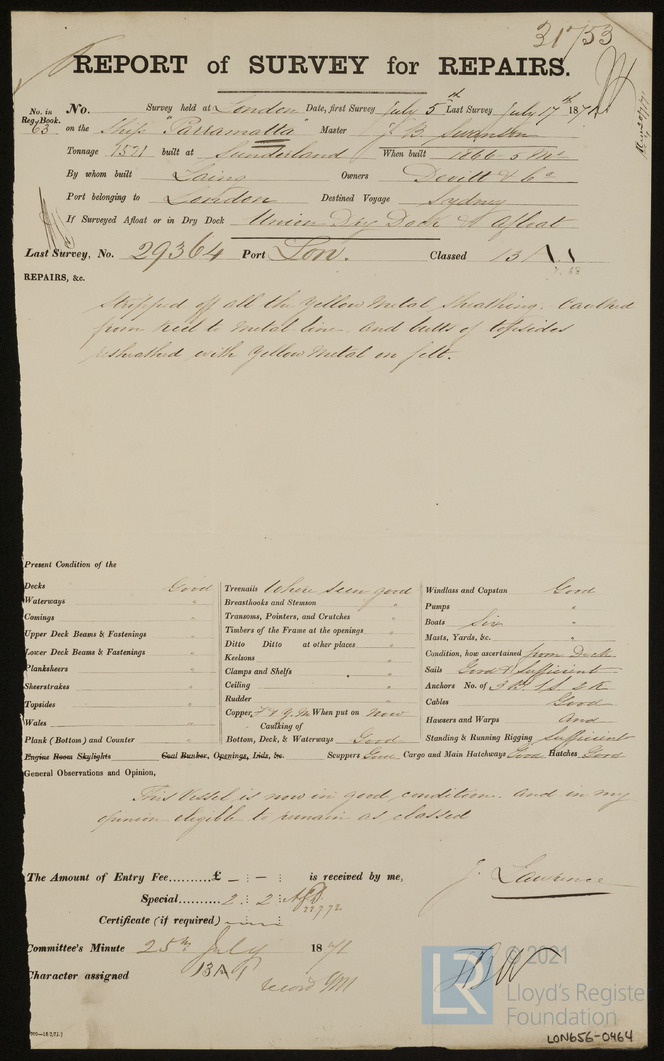 31753
REPORT of SURVEY for REPAIRS.
No. in Reg. Book. No. Survey held at London Date, first Survey July 5th Last Survey July 17th 1871
63 on the Ship "Parramatta" Master J. B. Swanson
Tonnage 1521 built at Sunderland When built 1866 5 Mo
By whom built Laing Owners Devitt & Co
Port belonging to London Destined Voyage Sydney
If Surveyed Afloat or in Dry Dock Union Dry Dock & Afloat
Last Survey, No. 29364 Port Lon. Classed 13 A 1
REPAIRS, &c.
Stripped off all the Yellow Metal Sheathing. Caulked
from keel to metal line and butts of topsides
resheathed with Yellow Metal on felt.
Present Condition of the
Decks Good
Waterways "
Comings "
Upper Deck Beams & Fastenings "
Lower Deck Beams & Fastenings "
Planksheers "
Sheerstrakes "
Topsides "
Wales "
Plank (Bottom) and Counter "
Engine Room Skylights Coal Bunker, Openings, Lids, &c.
Treenails Where seen good
Breasthooks and Stemson "
Transoms, Pointers, and Crutches "
Timbers of the Frame at the openings "
Ditto Ditto at other places "
Keelsons "
Clamps and Shelfs "
Ceiling "
Rudder "
Copper, F & Y.M. When put on Now
Caulking of
Bottom, Deck, & Waterways Good
Windlass and Capstan Good
Pumps "
Boats Six "
Masts, Yards, &c. "
Condition, how ascertained from Deck
Sails Good & Sufficient
Anchors No. of 3 B. 1 S. 2 K
Cables Good
Hawsers and Warps And
Standing & Running Rigging Sufficient
Scuppers Good Cargo and Main Hatchways Good Hatches Good
General Observations and Opinion,
This Vessel is now in good condition and in my
opinion eligible to remain as classed
The Amount of Entry Fee..........£ – : – : is received by me,
Special.......... 2 : 2 :
Certificate (if required)
J. Lawrence
Committee's Minute 25th July 1871
Character assigned 13 A 1
record YM
© 2021
LR
Lloyd's Register
Foundation
LON656-0464